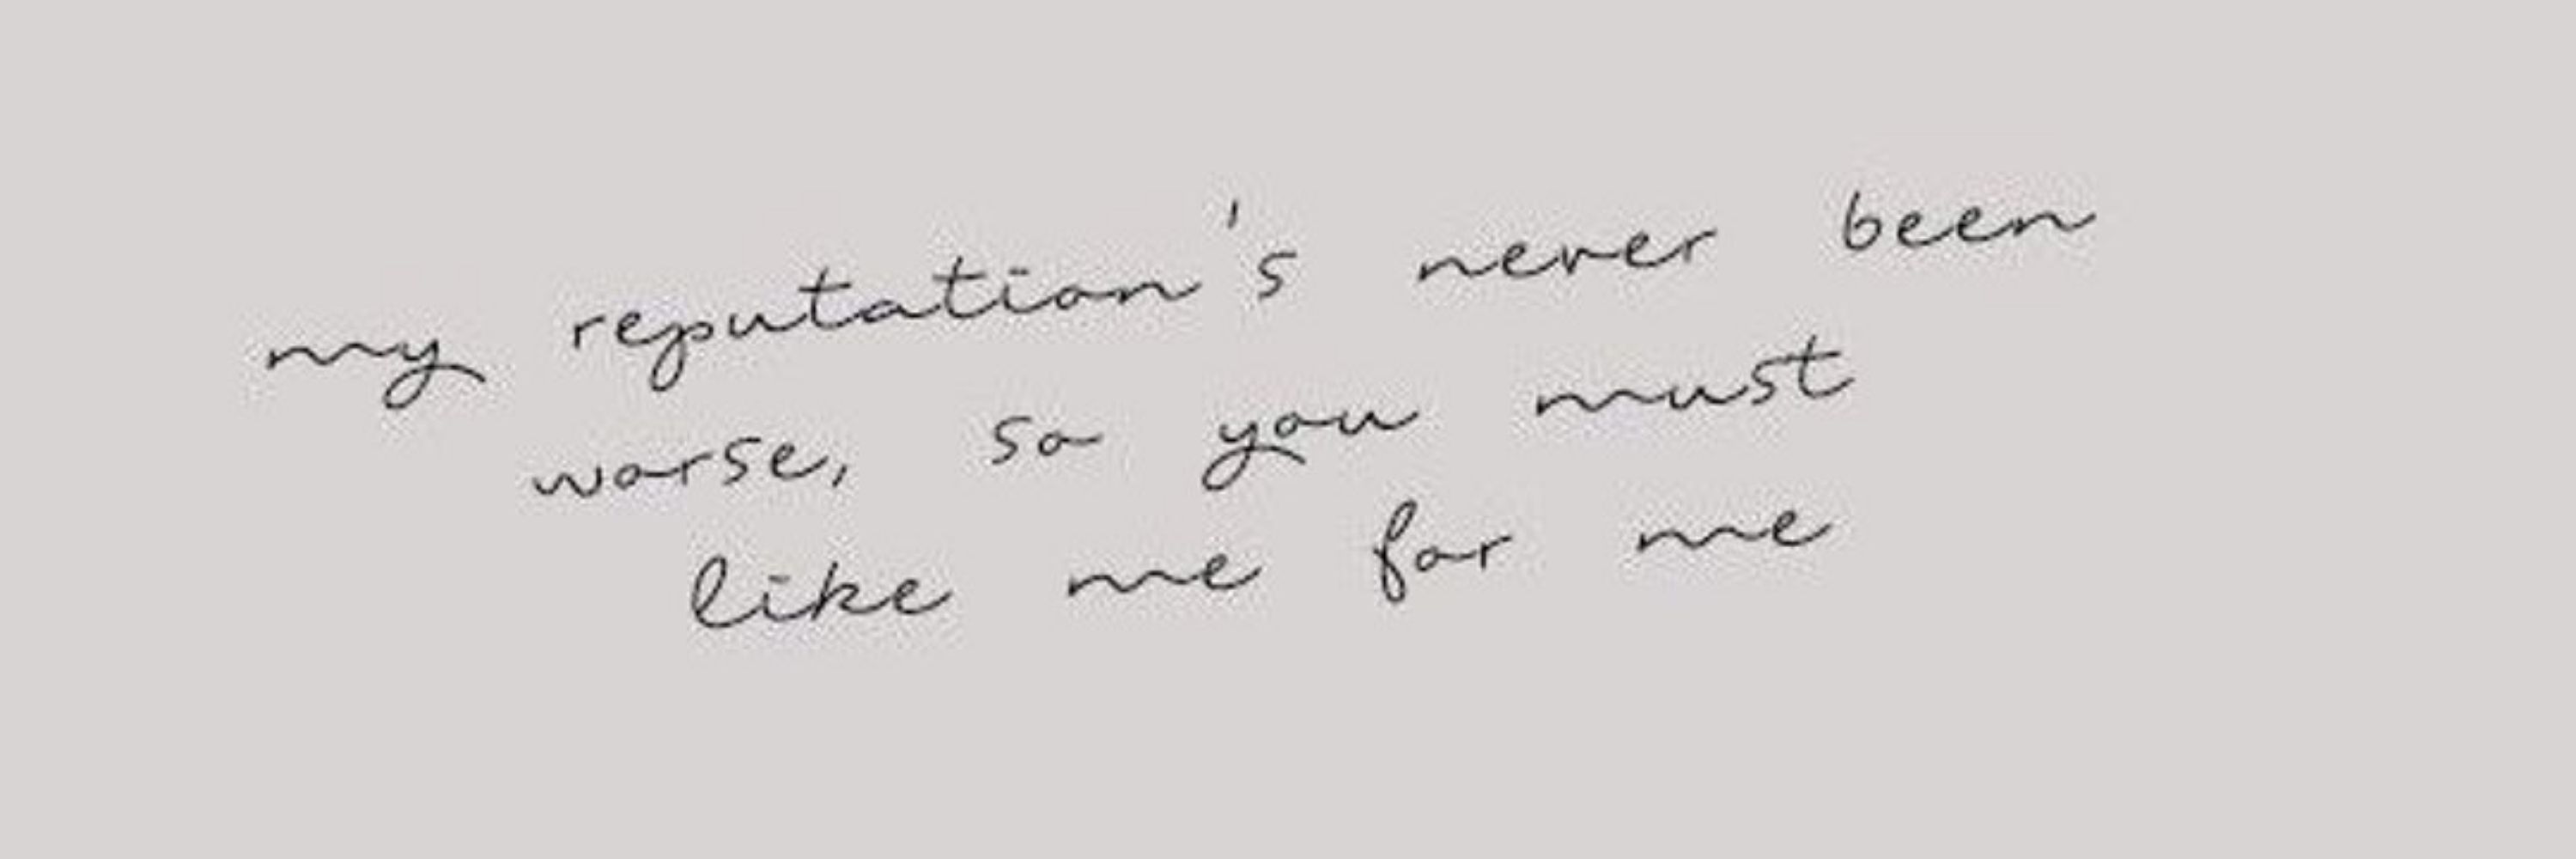 my reputation's never been
worse, so you must
like me for me